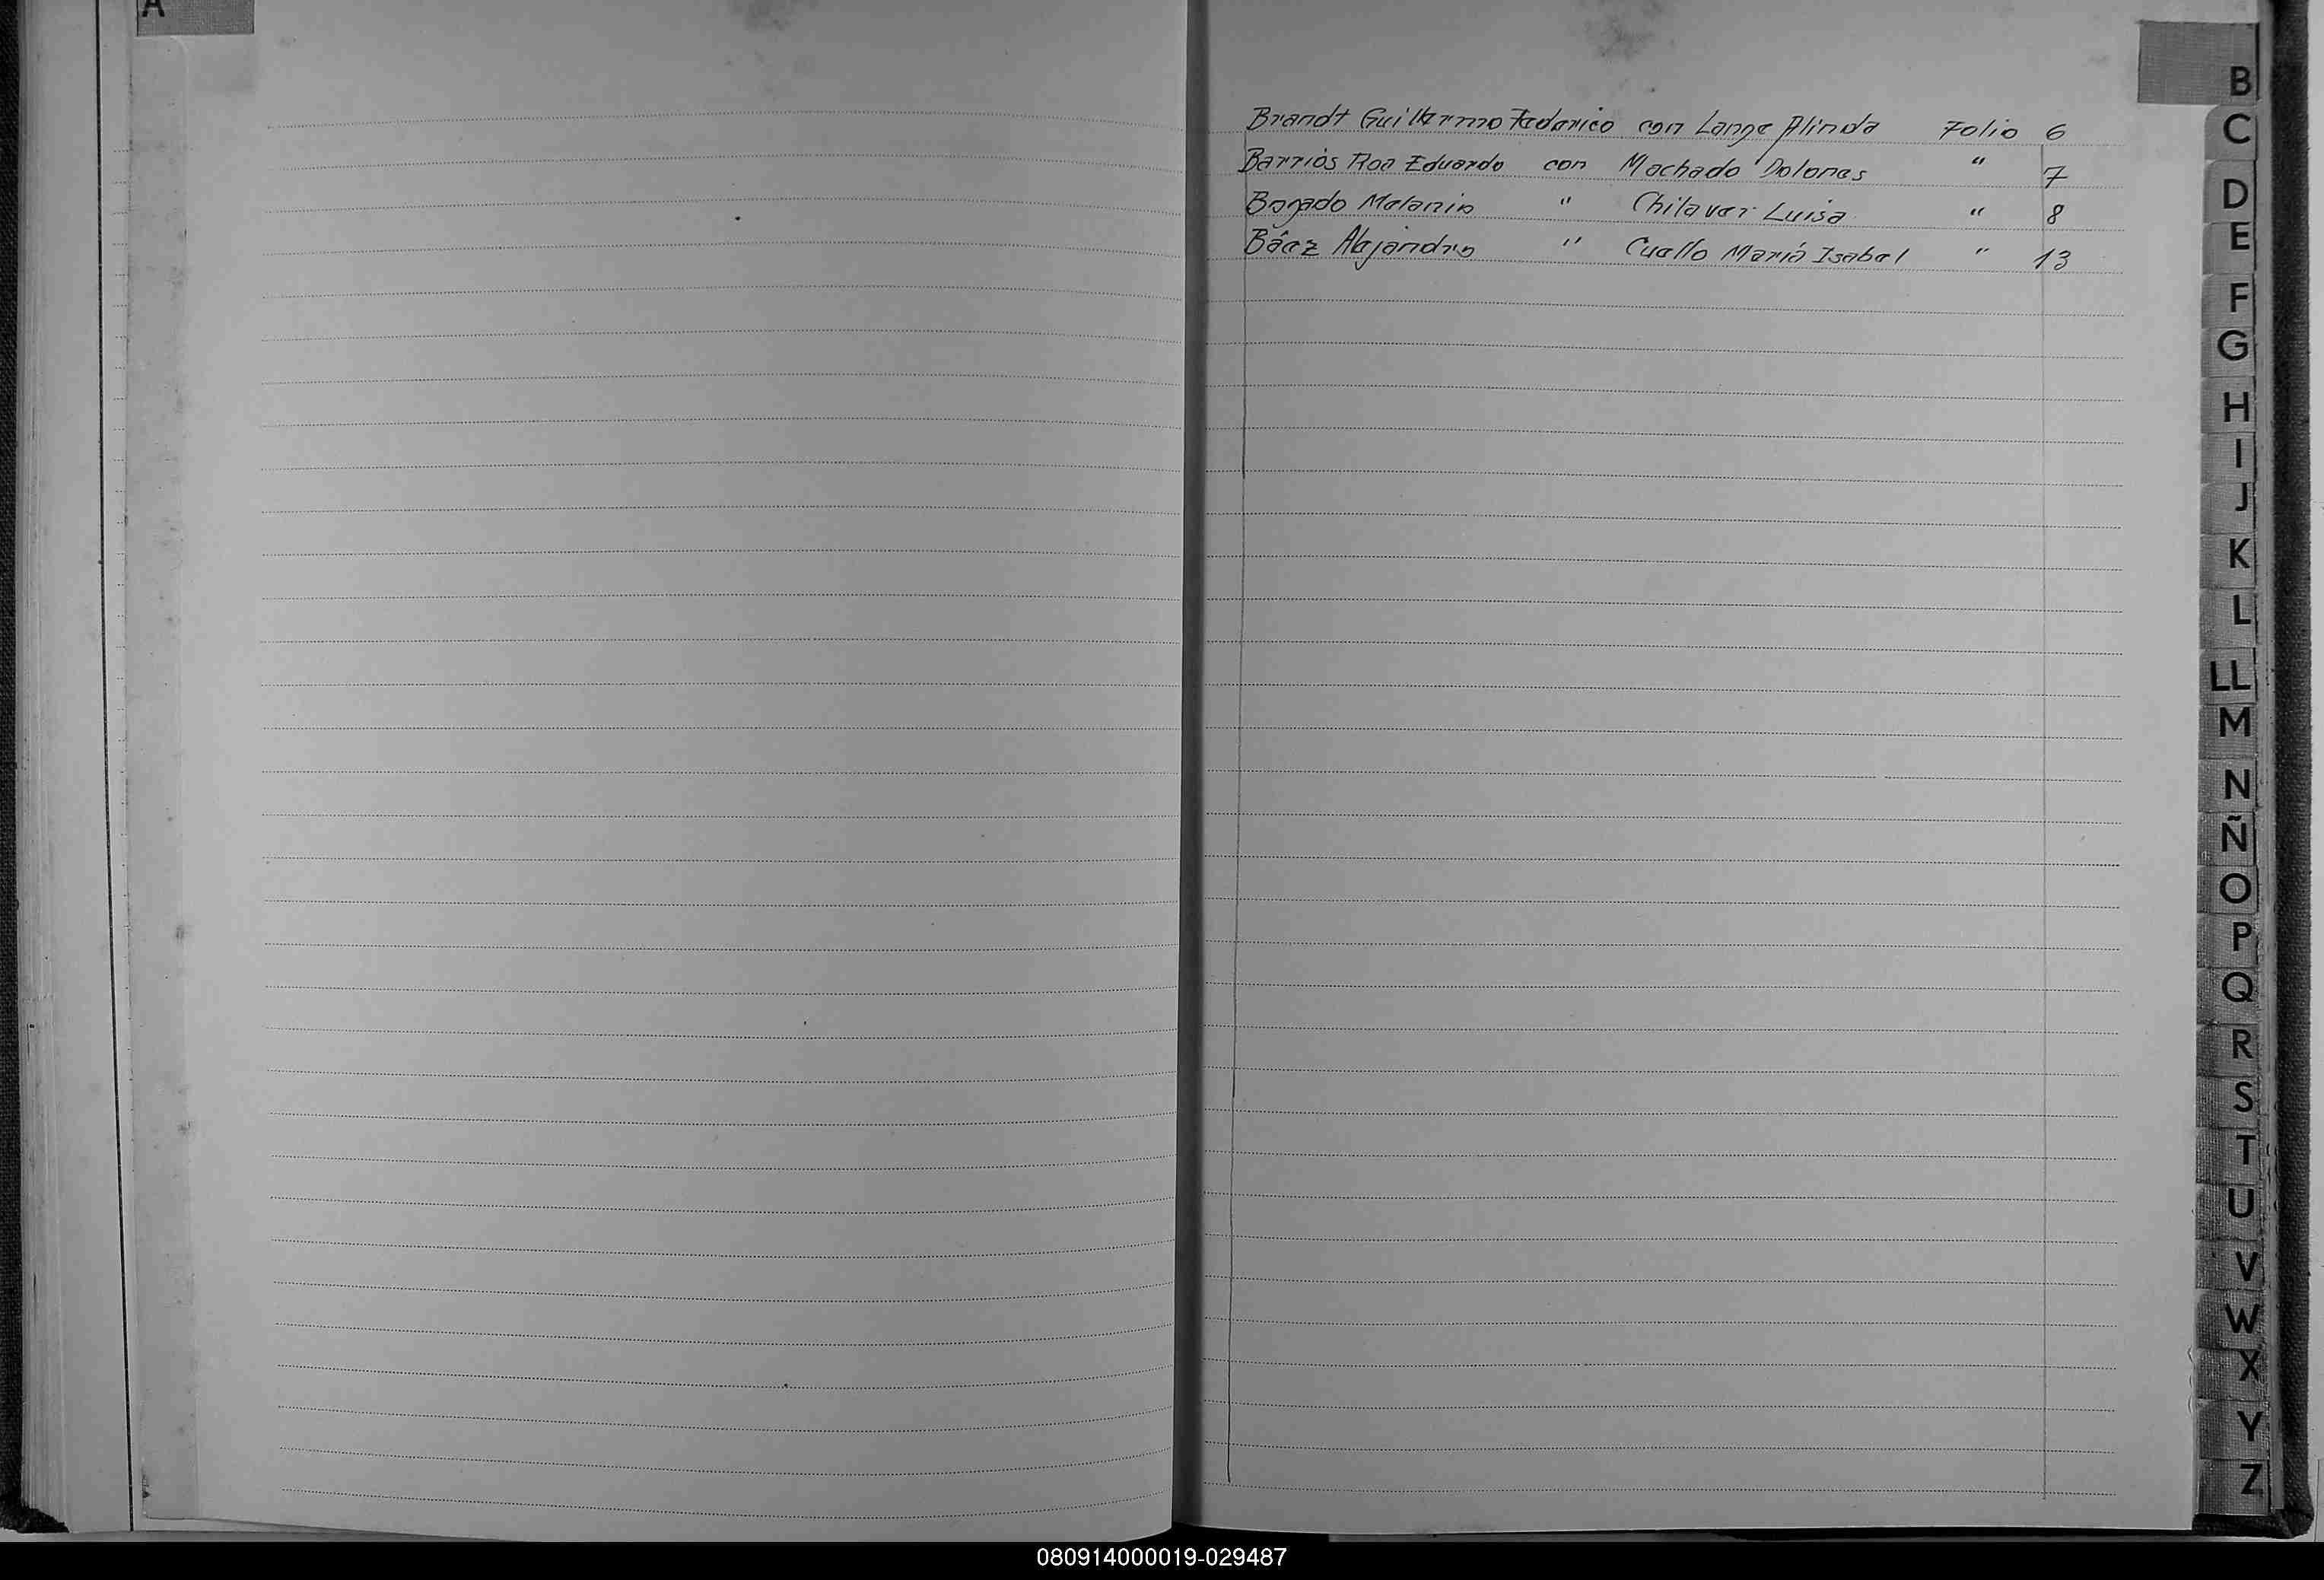 A
Brandt Guillermo Federico con Lange Alinda Folio 6
Barrios Roa Eduardo con Machado Dolores " 7
Bogado Melanio " Chilaver Luisa " 8
Báez Alejandro " Cuello María Isabel " 13
B
C
D
E
F
G
H
I
J
K
L
LL
M
N
Ñ
O
P
Q
R
S
T
U
V
W
X
Y
Z
080914000019-029487